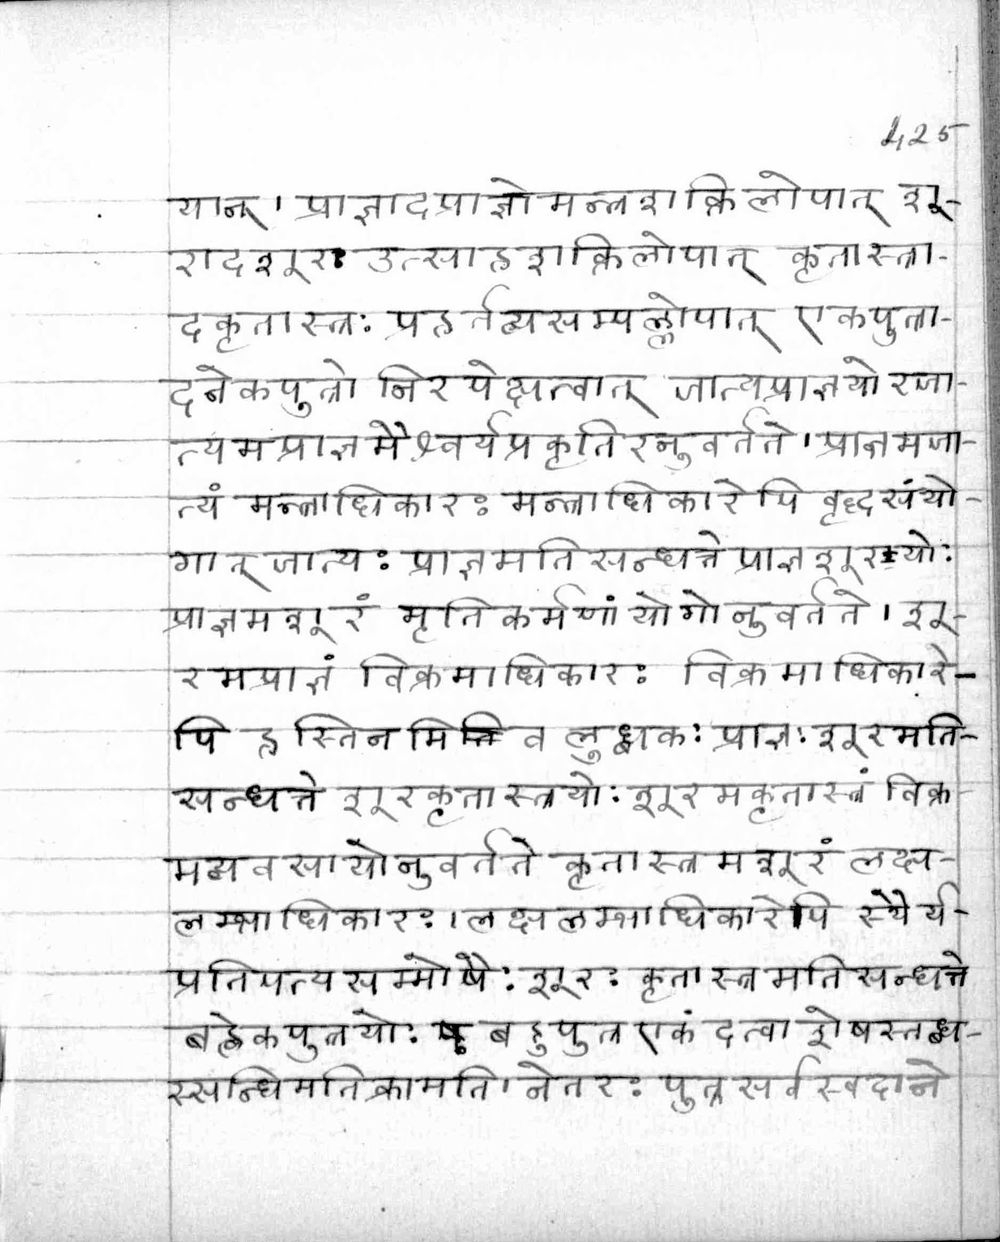 425
यान् । प्राज्ञादप्राज्ञो मन्त्रशक्तिलोपात् शू-
रादशूरः उत्साहशक्तिलोपात् कृतास्त्रा-
दकृतास्त्रः प्रहर्तव्यसम्पल्लोपात् एकपुत्रा-
दनेकपुत्रो निरपेक्षत्वात् जात्यप्राज्ञयोरजा-
त्यमप्राज्ञमैश्वर्यप्रकृतिरनुवर्तते । प्राज्ञमजा-
त्यं मन्त्राधिकारः मन्त्राधिकारेपि वृद्धसंयो-
गात् जात्यः प्राज्ञमतिसन्धत्ते प्राज्ञशूरयोः
प्राज्ञमशूरं मृतिकर्मणां योगोनुवर्तते । शू-
रमप्राज्ञं विक्रमाधिकारः विक्रमाधिकारे-
पि हस्तिनमिव लुब्धकः प्राज्ञः शूरमति-
सन्धत्ते शूरकृतास्त्रयोः शूरमकृतास्त्रं विक्र-
मव्यवसायोनुवर्तते कृतास्त्रमशूरं लक्ष-
लम्भाधिकारः । लक्षलम्भाधिकारेपि स्थैर्य-
प्रतिपत्यसम्मोषैः शूरः कृतास्त्रमतिसन्धत्ते
बह्वेकपुत्रयोः बहुपुत्र एकं दत्वा शेषस्तब्ध-
स्सन्धिमतिक्रामति । नेतरः पुत्रसर्वस्वदाने